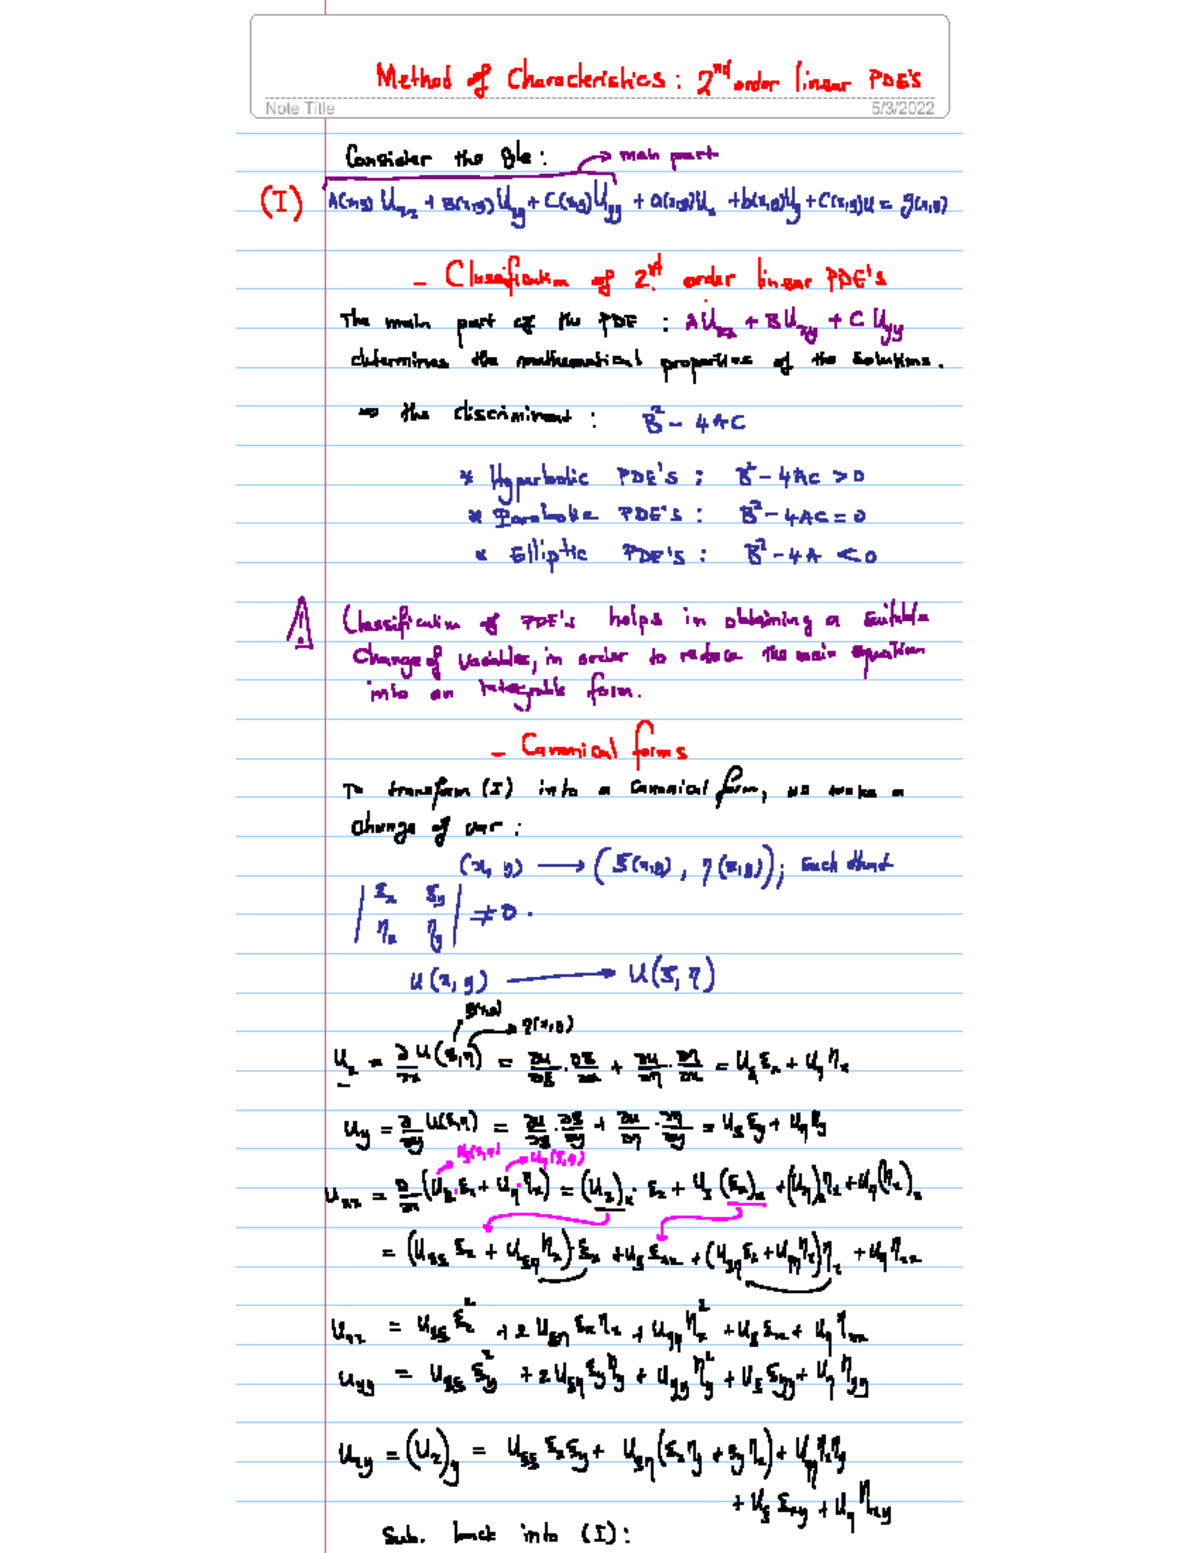 Method of Characteristics : 2nd order linear PDE's
Note Title
5/3/2022
Consider the Gle : → main part
(I) A(x,y) Uxx + B(x,y) Uxy + C(x,y) Uyy + a(x,y)Ux + b(x,y)Uy + C(x,y)u = g(x,y)
- Classification of 2nd order linear PDE's
The main part of the PDE : A Uxx + B Uxy + C Uyy
determines the mathematical properties of the solutions.
⇒ the discriminent : B² - 4AC
* Hyperbolic PDE's : B² - 4AC > 0
* Parabolic PDE's : B² - 4AC = 0
* Elliptic PDE's : B² - 4A < 0
⚠ Classification of PDE's helps in obtaining a suitable
Change of variables, in order to reduce the main equation
into an integrable form.
- Canonical forms
To transform (I) into a canonical form, we make a
change of var :
(x, y) → (ξ(x,y), η(x,y)); such that
| ξx ξy |
| ηx ηy | ≠ 0 .
u(x, y) → U(ξ, η)
ξ(x,y)
→ η(x,y)
Ux = ∂/∂x U(ξ,η) = ∂u/∂ξ · ∂ξ/∂x + ∂u/∂η · ∂η/∂x = Uξ ξx + Uη ηx
Uy = ∂/∂y U(ξ,η) = ∂u/∂ξ · ∂ξ/∂y + ∂u/∂η · ∂η/∂y = Uξ ξy + Uη ηy
Uξ(ξ,η) Uη(ξ,η)
Uxx = ∂/∂x (Uξ · ξx + Uη · ηx) = (Uξ)x · ξx + Uξ (ξx)x + (Uη)x ηx + Uη (ηx)x
= (Uξξ ξx + Uξη ηx) · ξx + Uξ ξxx + (Uξη ξx + Uηη ηx) ηx + Uη ηxx
Uxx = Uξξ ξx² + 2 Uξη ξx ηx + Uηη ηx² + Uξ ξxx + Uη ηxx
Uyy = Uξξ ξy² + 2 Uξη ξy ηy + Uηη ηy² + Uξ ξyy + Uη ηyy
Uxy = (Ux)y = Uξξ ξx ξy + Uξη (ξx ηy + ξy ηx) + Uηη ηx ηy
+ Uξ ξxy + Uη ηxy
Sub. back into (I) :